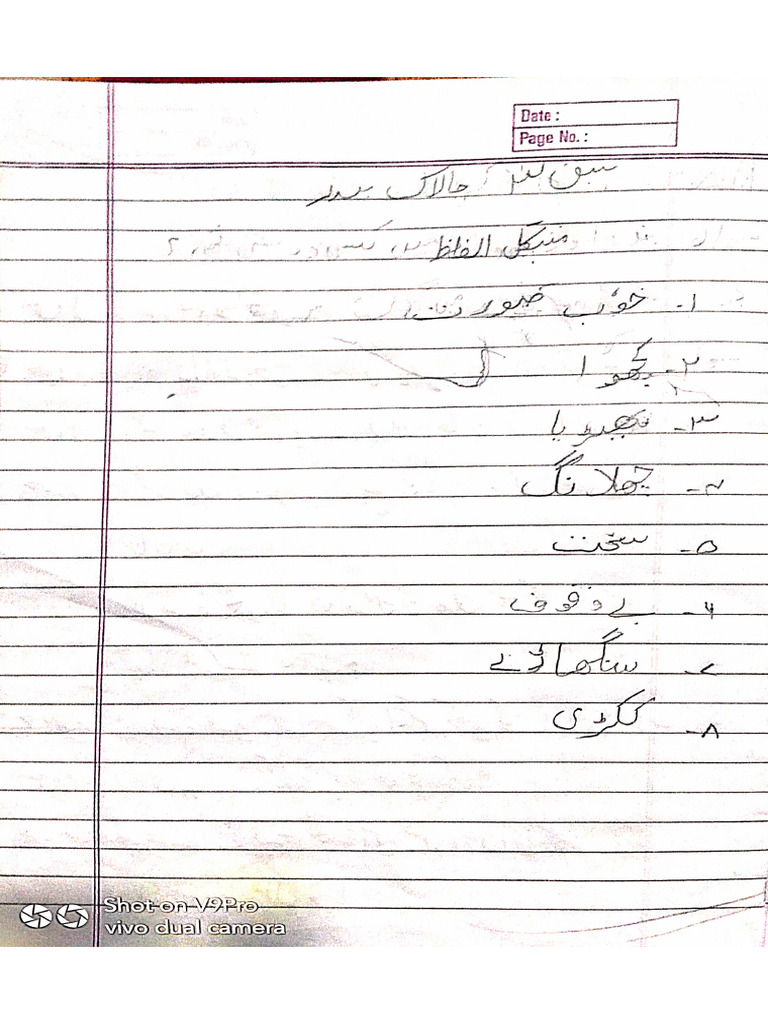 Date :
Page No. :
سبق نمبر ۳ چالاک بندر
مشکل الفاظ
۱- خوب صورت
۲- کچھوا
۳- بھیڑیا
۴- چھلانگ
۵- سخت
۶- بے وقوف
۷- سنگھاڑے
۸- ککڑی
Shot on V9Pro
vivo dual camera